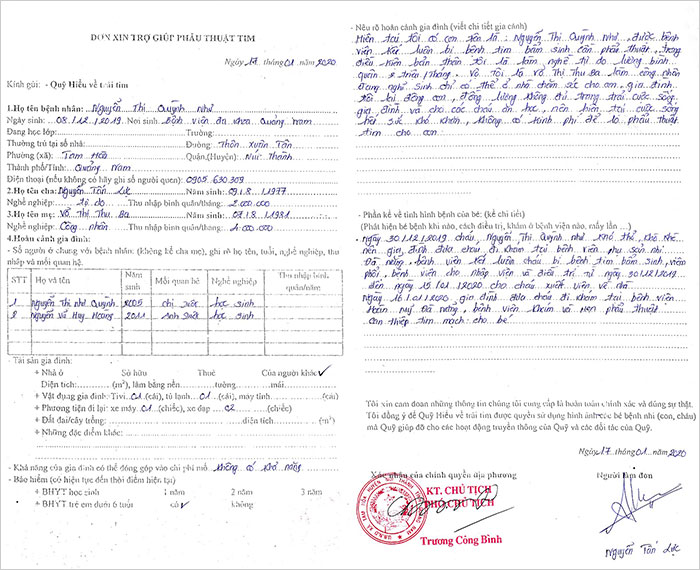 ĐƠN XIN TRỢ GIÚP PHẪU THUẬT TIM
Ngày 17 tháng 01 năm 2020
Kính gửi: - Quỹ Hiểu về trái tim
1.Họ tên bệnh nhân: Nguyễn Thị Quỳnh Như
Ngày sinh: 08.12.2019 Nơi sinh Bệnh viện đa khoa Quảng Nam
Đang học lớp: Trường:
Thường trú tại số nhà: Đường: Thôn Xuân Tân
Phường (xã): Tam Quận,(Huyện): Núi Thành
Thành phố/Tỉnh: Quảng Nam
Điện thoại (nếu không có hãy ghi số người quen): 0905 630309
2.Họ tên cha: Nguyễn Tấn Lực Năm sinh: 09.8.1977
Nghề nghiệp: tự do Thu nhập bình quân/tháng: 2.000.000
3.Họ tên mẹ: Võ Thị Thu Ba Năm sinh: 07.8.1981
Nghề nghiệp: Công nhân Thu nhập bình quân/tháng: 4.000.000
4.Hoàn cảnh gia đình:
- Số người ở chung với bệnh nhân: (không kể cha mẹ), ghi rõ họ tên, tuổi, nghề nghiệp, thu
nhập và mối quan hệ.
STT Họ và tên Năm sinh Mối quan hệ Nghề nghiệp Thu nhập bình quân/năm
1 Nguyễn Thị Như Quỳnh 2005 chị ruột học sinh
2 Nguyễn Vũ Huy Hoàng 2011 Anh ruột học sinh
- Tài sản gia đình:
+ Nhà ở Sở hữu Thuê Của người khác ✓
Diện tích: (m²), làm bằng nền tường mái
+ Vật dụng gia đình: Tivi 01 (cái), tủ lạnh 01 (cái), máy tính (cái)
+ Phương tiện đi lại: xe máy 01 (chiếc), xe đạp 02 (chiếc)
+ Đất đai/cây trồng: diện tích (m²)
+ Những đặc điểm khác:
- Khả năng của gia đình có thể đóng góp vào chi phí mổ Không có khả năng
- Bảo hiểm (có hiệu lực đến thời điểm hiện tại)
+ BHYT học sinh 1 năm 2 năm 3 năm
+ BHYT trẻ em dưới 6 tuổi có ✓ không
- Nêu rõ hoàn cảnh gia đình (viết chi tiết gia cảnh)
Hiện tại tôi có con tên là: Nguyễn Thị Quỳnh Như, được bệnh
viện kết luận bị bệnh tim bẩm sinh cần phẫu thuật, trong
điều kiện bản thân tôi là làm nghề tự do lương bình
quân 2 triệu/tháng. Vợ tôi là Võ Thị Thu Ba làm công nhân
đang nghỉ sinh chỉ có thể ở nhà chăm sóc cho con, gia đình
tôi lại đông con, đồng lương không đủ trang trải cuộc sống
gia đình và cho các cháu ăn học, nên hiện tại cuộc sống
hết sức khó khăn, không có kinh phí để lo phẫu thuật
tim cho con.
- Phần kể về tình hình bệnh của bé: (kể chi tiết)
(Phát hiện bị bệnh khi nào, cách điều trị, khám ở bệnh viện nào, mấy lần ...)
Ngày 30.12.2019 cháu Nguyễn Thị Quỳnh Như khó thở, khò khè
nên gia đình đưa cháu đi khám tại bệnh viện phụ sản nhi
Đà Nẵng. bệnh viện kết luận cháu bị bệnh tim bẩm sinh, viêm
phổi, bệnh viện cho nhập viện và điều trị từ ngày 30.12.2019
đến ngày 15.01.2020 cho cháu xuất viện về nhà
Ngày 16.01.2020 gia đình đưa cháu đi khám tại bệnh viện
Hoàn Mỹ Đà Nẵng, bệnh viện khám và hẹn phẫu thuật
can thiệp tim mạch cho bé
Tôi xin cam đoan những thông tin chúng tôi cung cấp là hoàn toàn chính xác và đúng sự thật.
Tôi đồng ý để Quỹ Hiểu về trái tim được quyền sử dụng hình ảnh các bé bệnh nhi (con, cháu)
mà Quỹ giúp đỡ cho các hoạt động truyền thông của Quỹ và các đối tác của Quỹ.
Ngày 17 tháng 01 năm 2020
Xác nhận của chính quyền địa phương
Người làm đơn
KT. CHỦ TỊCH
PHÓ CHỦ TỊCH
Trương Công Bình
Nguyễn Tấn Lực